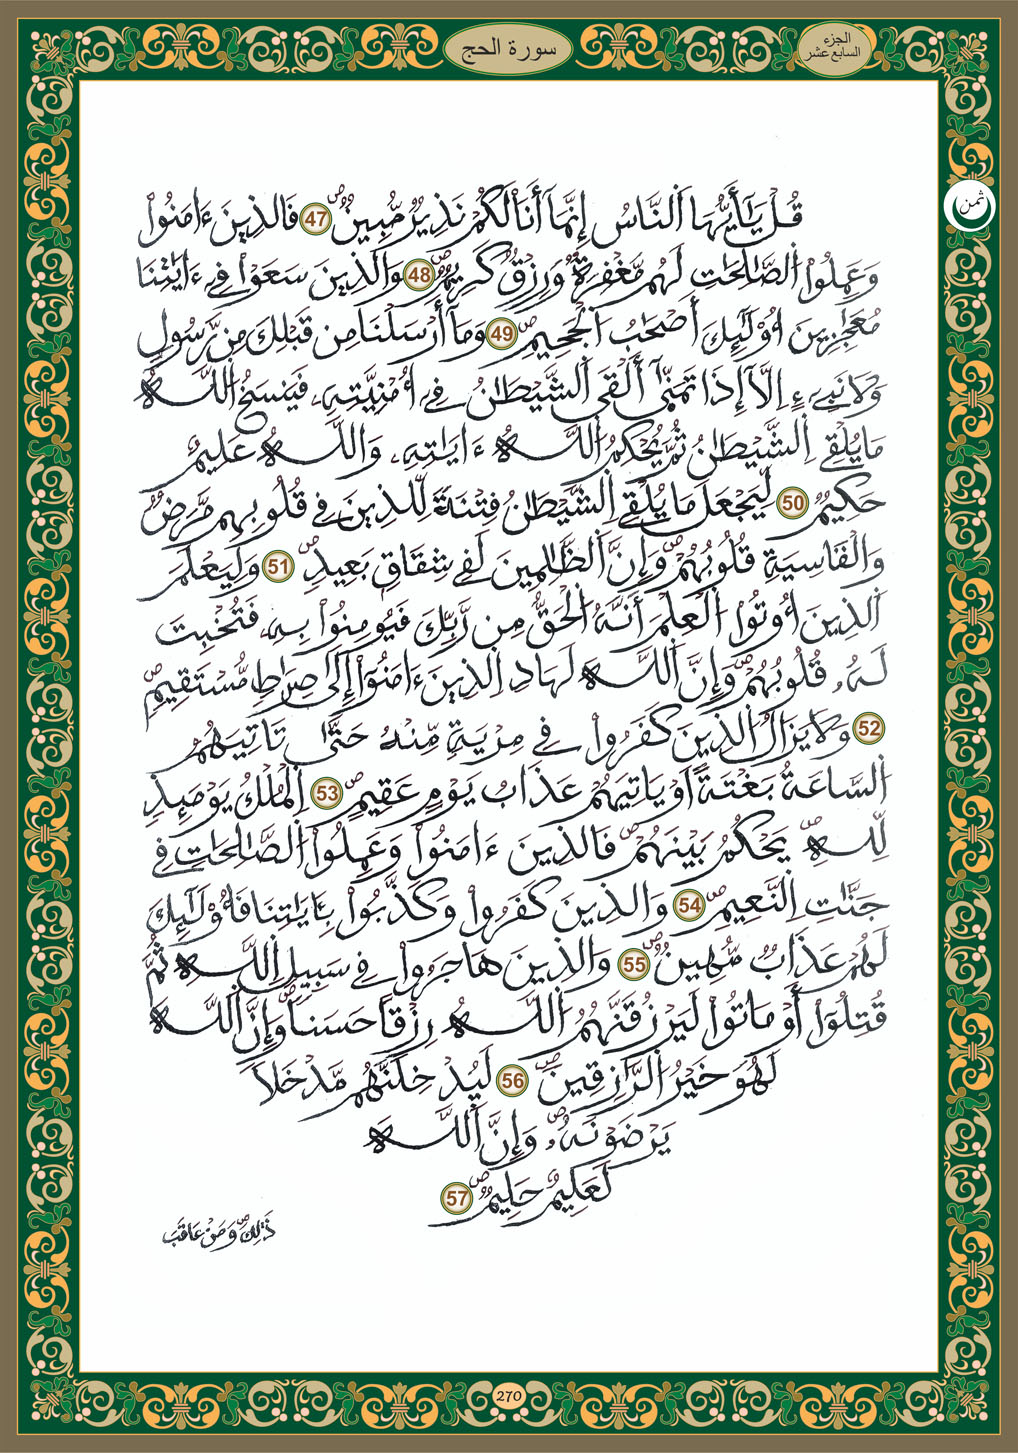 الجزء
السابع عشر
سورة الحج
ثمن
قُلْ يَٰٓأَيُّهَا اَ۬لنَّاسُ إِنَّمَآ أَنَا لَكُمْ نَذِيرٞ مُّبِينٞۖ 47 فَالذِينَ ءَامَنُواْ
وَعَمِلُواْ اُ۬لصَّٰلِحَٰتِ لَهُم مَّغْفِرَةٞ وَرِزْقٞ كَرِيمٞۖ 48 وَالذِينَ سَعَوْاْ فِےٓ ءَايَٰتِنَا
مُعَٰجِزِينَ أُوْلَٰٓئِكَ أَصْحَٰبُ اُ۬لْجَحِيمِۖ 49 وَمَآ أَرْسَلْنَا مِن قَبْلِكَ مِن رَّسُولٖ
وَلَا نَبِےٓءٍ اِلَّآ إِذَا تَمَنّ۪يٰٓ أَلْقَى اَ۬لشَّيْطَٰنُ فِےٓ أُمْنِيَّتِهِۦ فَيَنسَخُ اُ۬للَّهُ
مَا يُلْقِے اِ۬لشَّيْطَٰنُ ثُمَّ يُحْكِمُ اُ۬للَّهُ ءَايَٰتِهِۦ وَاللَّهُ عَلِيمٌ
حَكِيمٞ 50 لِّيَجْعَلَ مَا يُلْقِے اِ۬لشَّيْطَٰنُ فِتْنَةٗ لِّلذِينَ فِے قُلُوبِهِم مَّرَضٞ
وَالْقَاسِيَةِ قُلُوبُهُمْۖ وَإِنَّ اَ۬لظَّٰلِمِينَ لَفِے شِقَاقِۢ بَعِيدٖۖ 51 وَلِيَعْلَمَ
اَ۬لذِينَ أُوتُواْ اُ۬لْعِلْمَ أَنَّهُ اُ۬لْحَقُّ مِن رَّبِّكَ فَيُومِنُواْ بِهِۦ فَتُخْبِتَ
لَهُۥ قُلُوبُهُمْۖ وَإِنَّ اَ۬للَّهَ لَهَادِ اِ۬لذِينَ ءَامَنُوٓاْ إِلَىٰ صِرَٰطٖ مُّسْتَقِيمٖۖ
52 وَلَا يَزَالُ اُ۬لذِينَ كَفَرُواْ فِے مِرْيَةٖ مِّنْهُ حَتَّىٰ تَاتِيَهُمُ
اُ۬لسَّاعَةُ بَغْتَةً اَوْ يَاتِيَهُمْ عَذَابُ يَوْمٍ عَقِيمٍۖ 53 اِ۬لْمُلْكُ يَوْمَئِذٖ
لِّلهِۖ يَحْكُمُ بَيْنَهُمْۖ فَالذِينَ ءَامَنُواْ وَعَمِلُواْ اُ۬لصَّٰلِحَٰتِ فِے
جَنَّٰتِ اِ۬لنَّعِيمِۖ 54 وَالذِينَ كَفَرُواْ وَكَذَّبُواْ بِـَٔايَٰتِنَا فَأُوْلَٰٓئِكَ
لَهُمْ عَذَابٞ مُّهِينٞۖ 55 وَالذِينَ هَاجَرُواْ فِے سَبِيلِ اِ۬للَّهِ ثُمَّ
قُتِلُوٓاْ أَوْ مَاتُواْ لَيَرْزُقَنَّهُمُ اُ۬للَّهُ رِزْقاً حَسَناٗۖ وَإِنَّ اَ۬للَّهَ
لَهُوَ خَيْرُ اُ۬لرَّٰزِقِينَۖ 56 لَيُدْخِلَنَّهُم مَّدْخَلاٗ
يَرْضَوْنَهُۥۖ وَإِنَّ اَ۬للَّهَ
لَعَلِيمٌ حَلِيمٞۖ 57
ذَٰلِكَۖ وَمَنْ عَاقَبَ
270